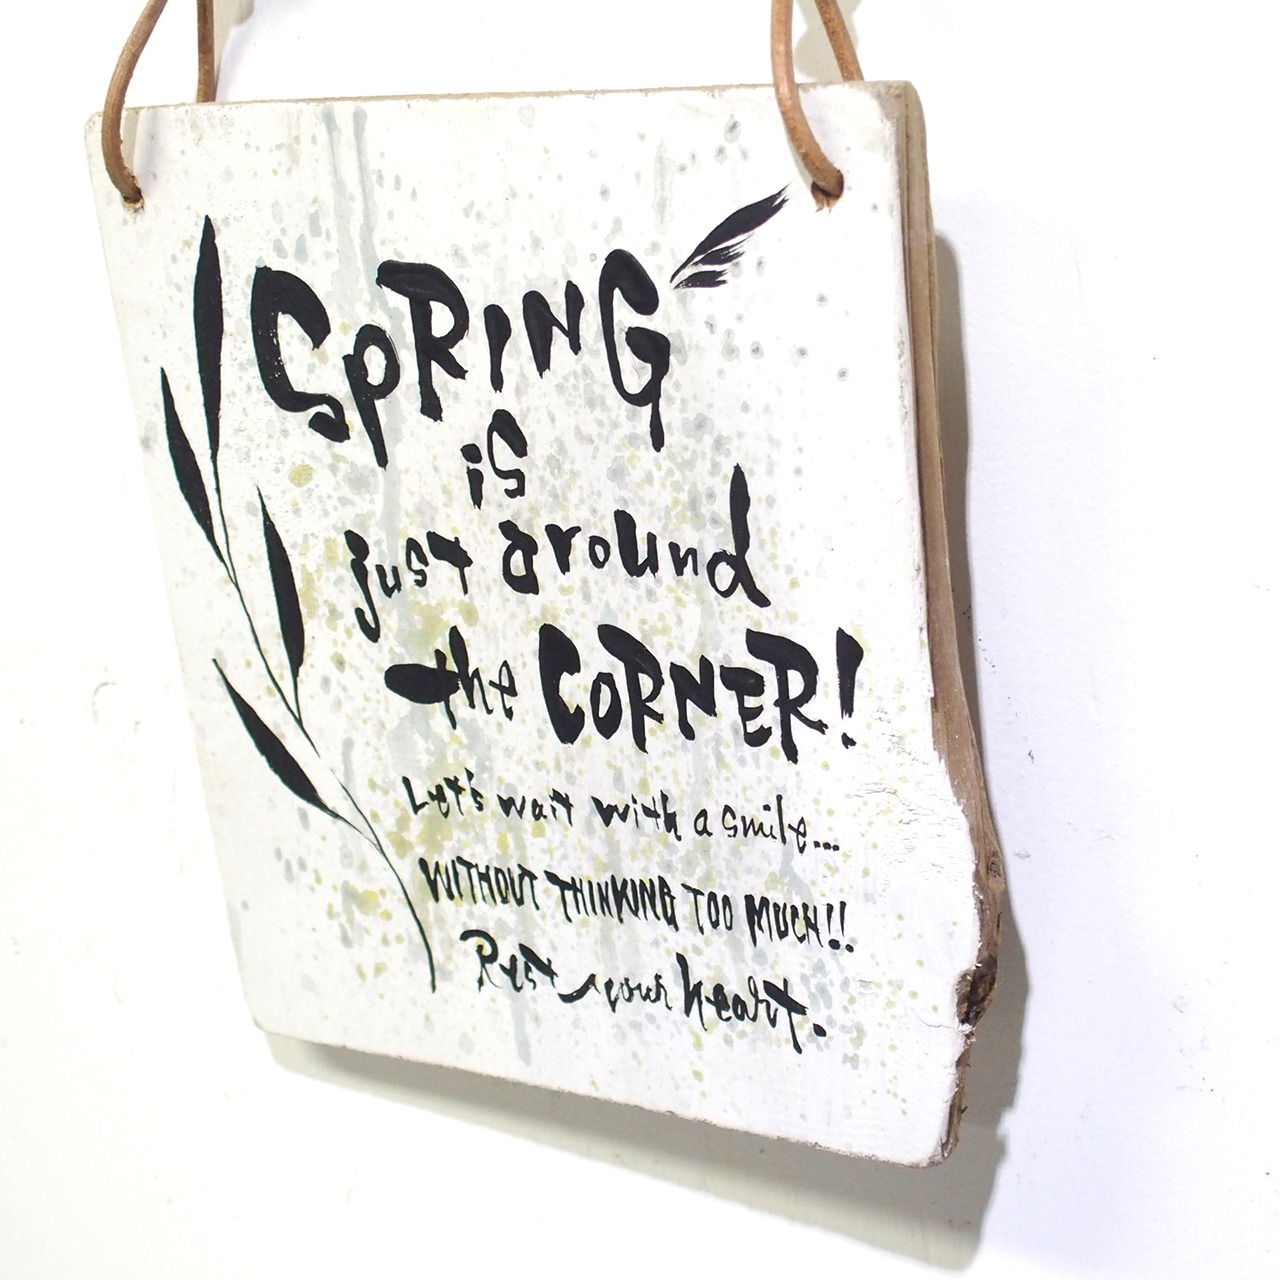 SpRING
is
just around
the CORNER!
Let's wait with a smile...
WITHOUT THINKING TOO MUCH!!
Rest your heart.